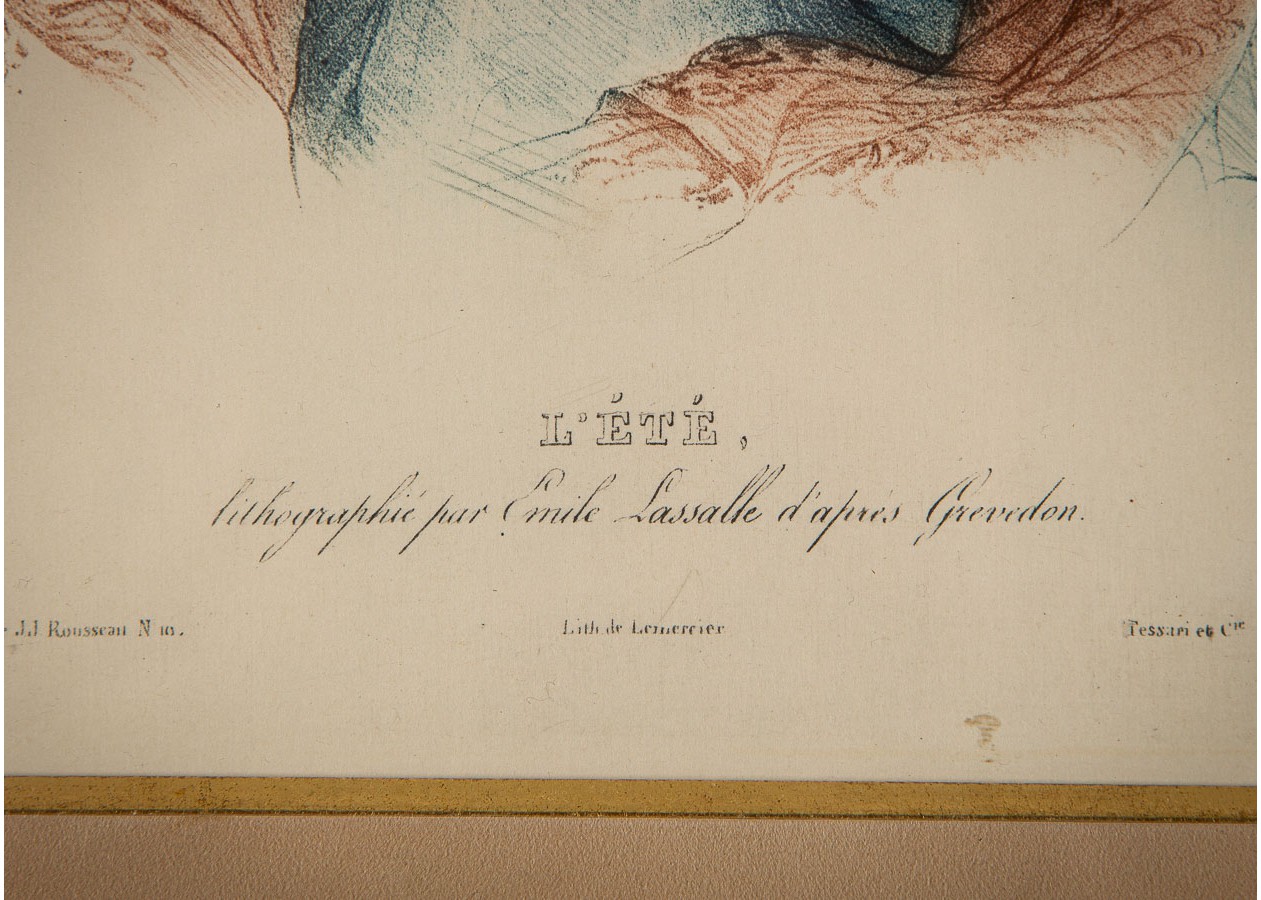 L'ÉTÉ,
lithographié par Emile Lassalle d'après Grevedon.
J.J Rousseau N 10. Lith. de Lemercier Tessari et Cie